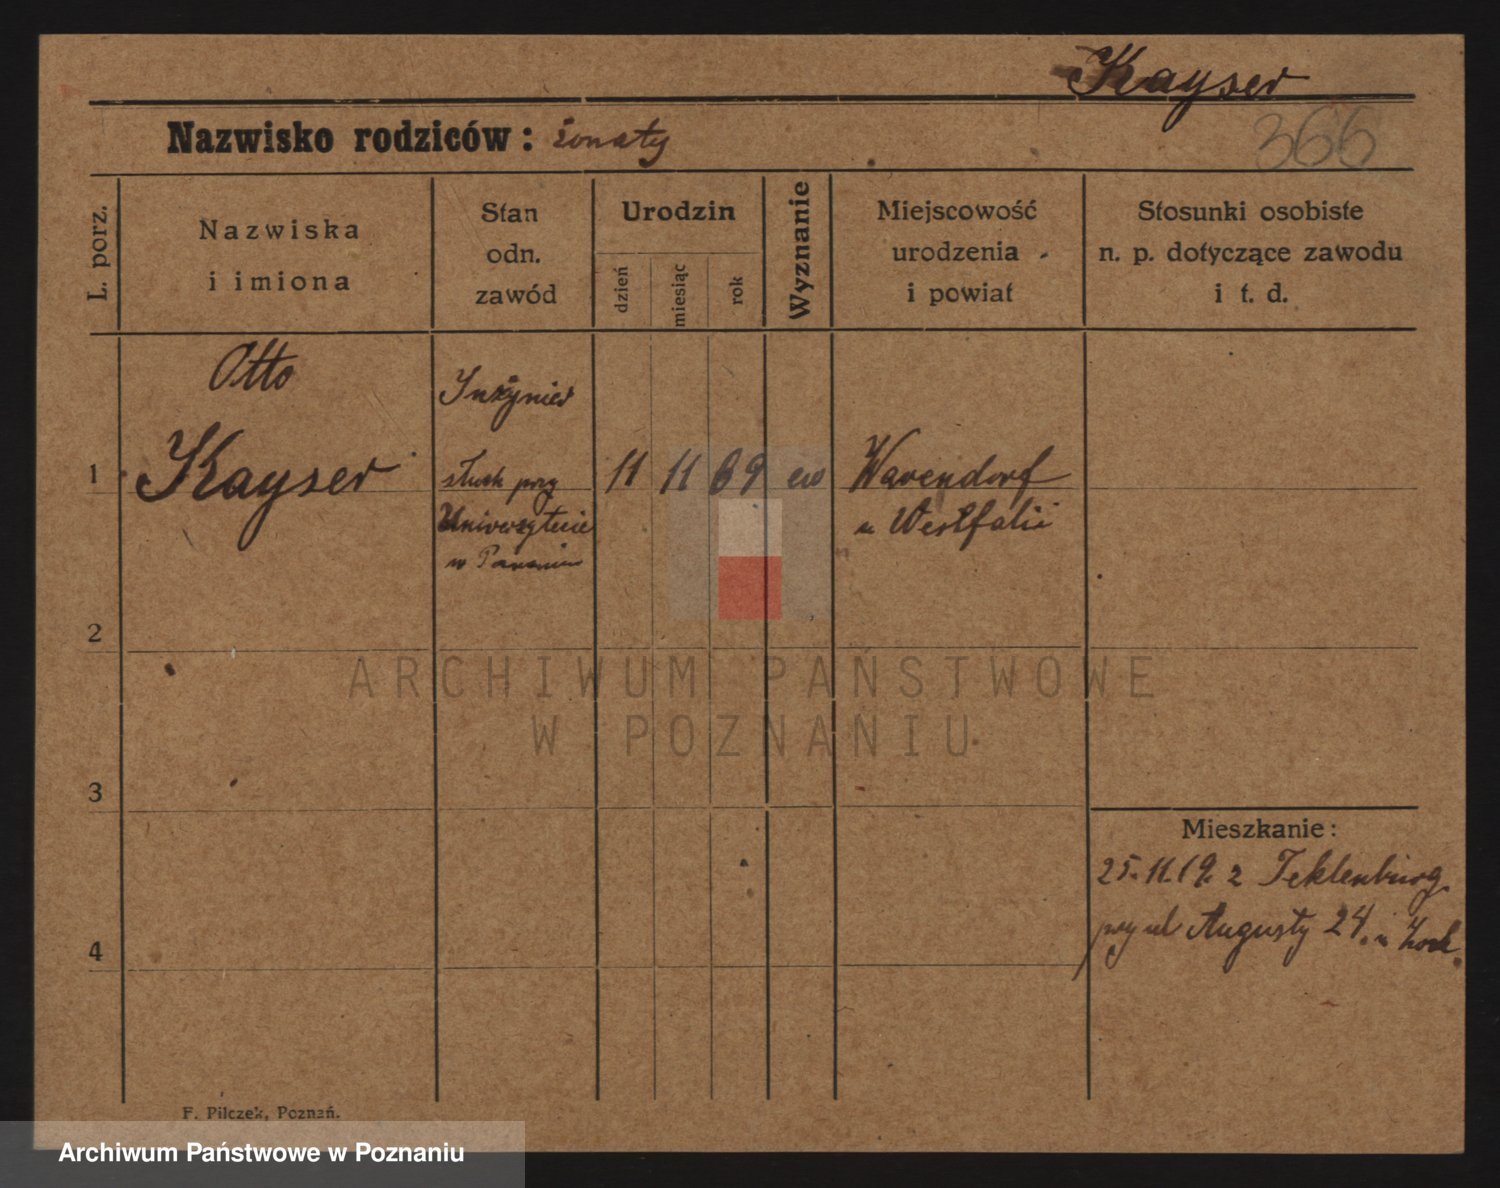 Kayser
Nazwisko rodziców: żonaty
366
L. porz.
Nazwiska
i imiona
Stan
odn.
zawód
Urodzin
dzień
miesiąc
rok
Wyznanie
Miejscowość
urodzenia
i powiat
Stosunki osobiste
n. p. dotyczące zawodu
i t. d.
Otto
Inżynier
1 Kayser
słuch przy 11 11 89 ew Warendorf
Uniwersytecie w Westfalii
w Poznaniu
2
ARCHIWUM PAŃSTWOWE
W POZNANIU
3
Mieszkanie:
25.11.19. z Teklenburg
przy ul Augusty 24.
4
F. Pilczek, Poznań.
Archiwum Państwowe w Poznaniu